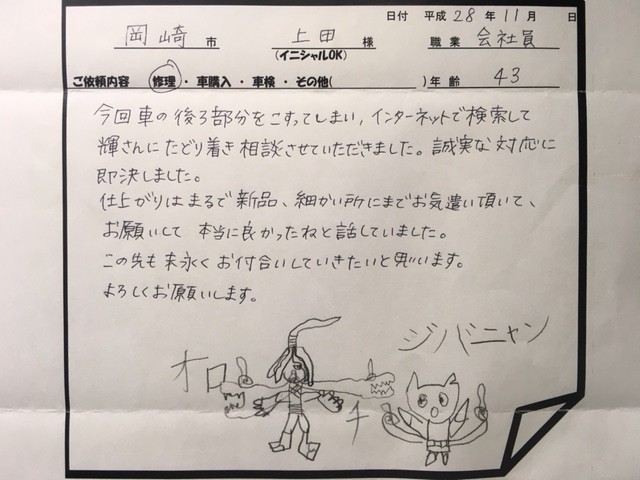 日付 平成 28 年 11 月 日
岡崎 市 上田 様 職業 会社員
(イニシャルOK)
ご依頼内容 修理・車購入・車検・その他( )年齢 43
今回車の後ろ部分をこすってしまい,インターネットで検索して
輝さんにたどり着き相談させていただきました。誠実な対応に
即決しました。
仕上がりはまるで新品、細かい所にまでお気遣い頂いて、
お願いして本当に良かったねと話していました。
この先も末永くお付合いしていきたいと思います。
よろしくお願いします。
ジバニャン
オロチ